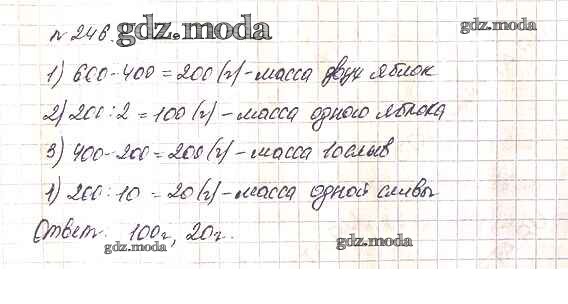 № 246. gdz.moda gdz.moda
1) 600-400=200(г)-масса двух яблок
2) 200:2=100(г)-масса одного яблока
3) 400-200=200(г)-масса 10 слив
4) 200:10=20(г)-масса одной сливы
Ответ. 100г, 20г.
gdz.moda gdz.moda